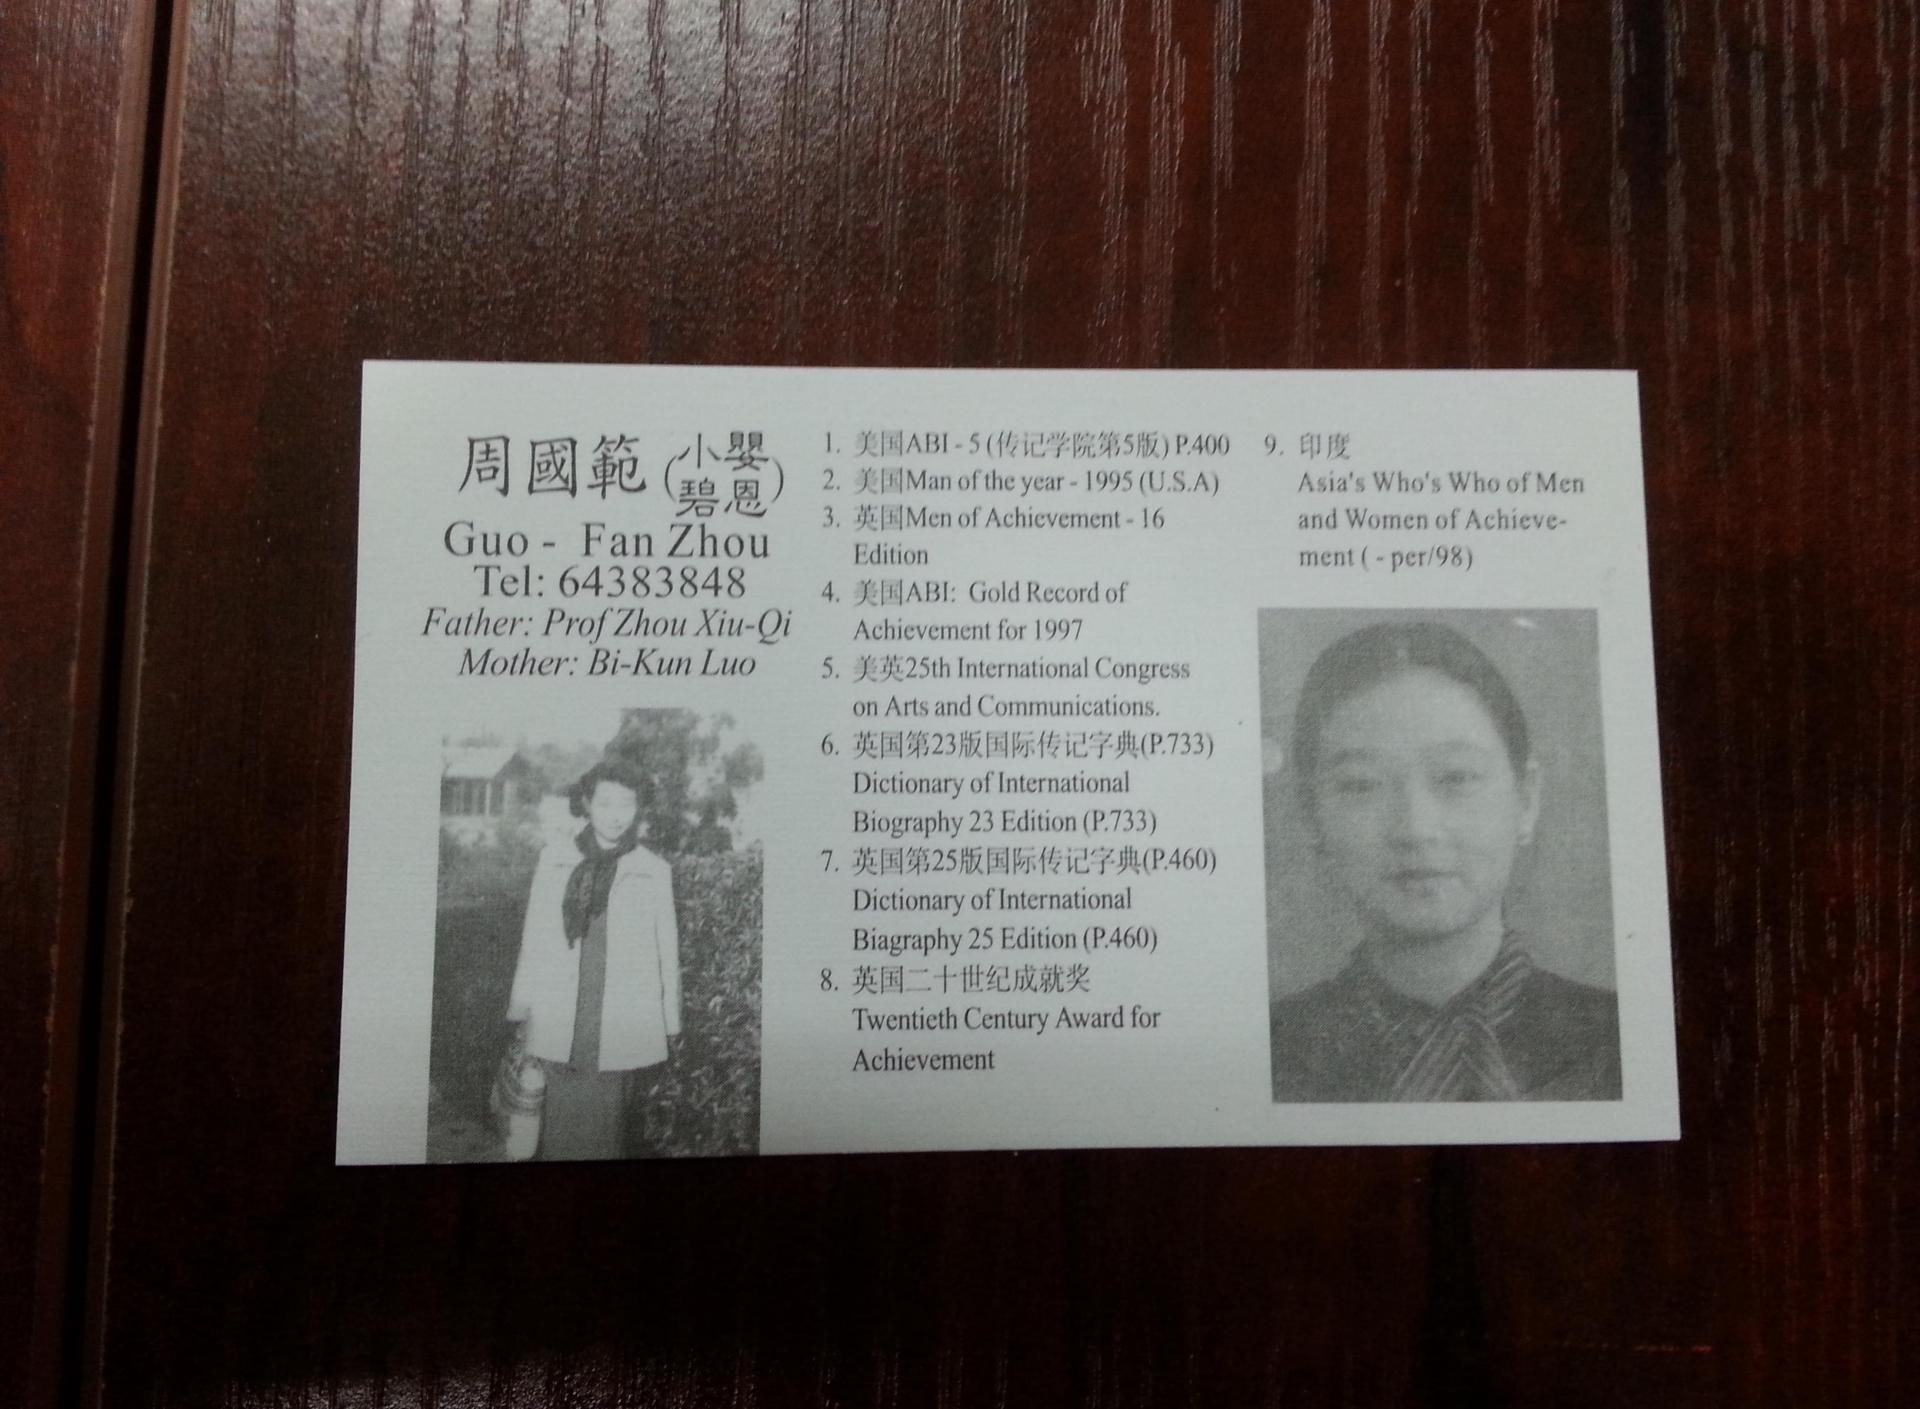 周國範(小嬰
碧恩)
Guo - Fan Zhou
Tel: 64383848
Father: Prof Zhou Xiu-Qi
Mother: Bi-Kun Luo
1. 美国ABI - 5 (传记学院第5版) P.400
2. 美国Man of the year - 1995 (U.S.A)
3. 英国Men of Achievement - 16
Edition
4. 美国ABI: Gold Record of
Achievement for 1997
5. 美英25th International Congress
on Arts and Communications.
6. 英国第23版国际传记字典(P.733)
Dictionary of International
Biography 23 Edition (P.733)
7. 英国第25版国际传记字典(P.460)
Dictionary of International
Biagraphy 25 Edition (P.460)
8. 英国二十世纪成就奖
Twentieth Century Award for
Achievement
9. 印度
Asia's Who's Who of Men
and Women of Achieve-
ment ( - per/98)